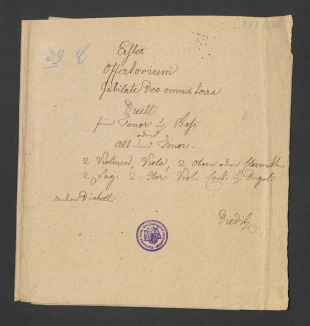 29 C
Erstes
Offertorium
Jubilate Deo omnis terra
Duett
für Tenor u Bass
oder
Alt und Tenor.
2 Violinen, Viola, 2 Oboen oder Clarinett
2 Fag: 2 Violi Conti u Orgel
Anton Diabelli